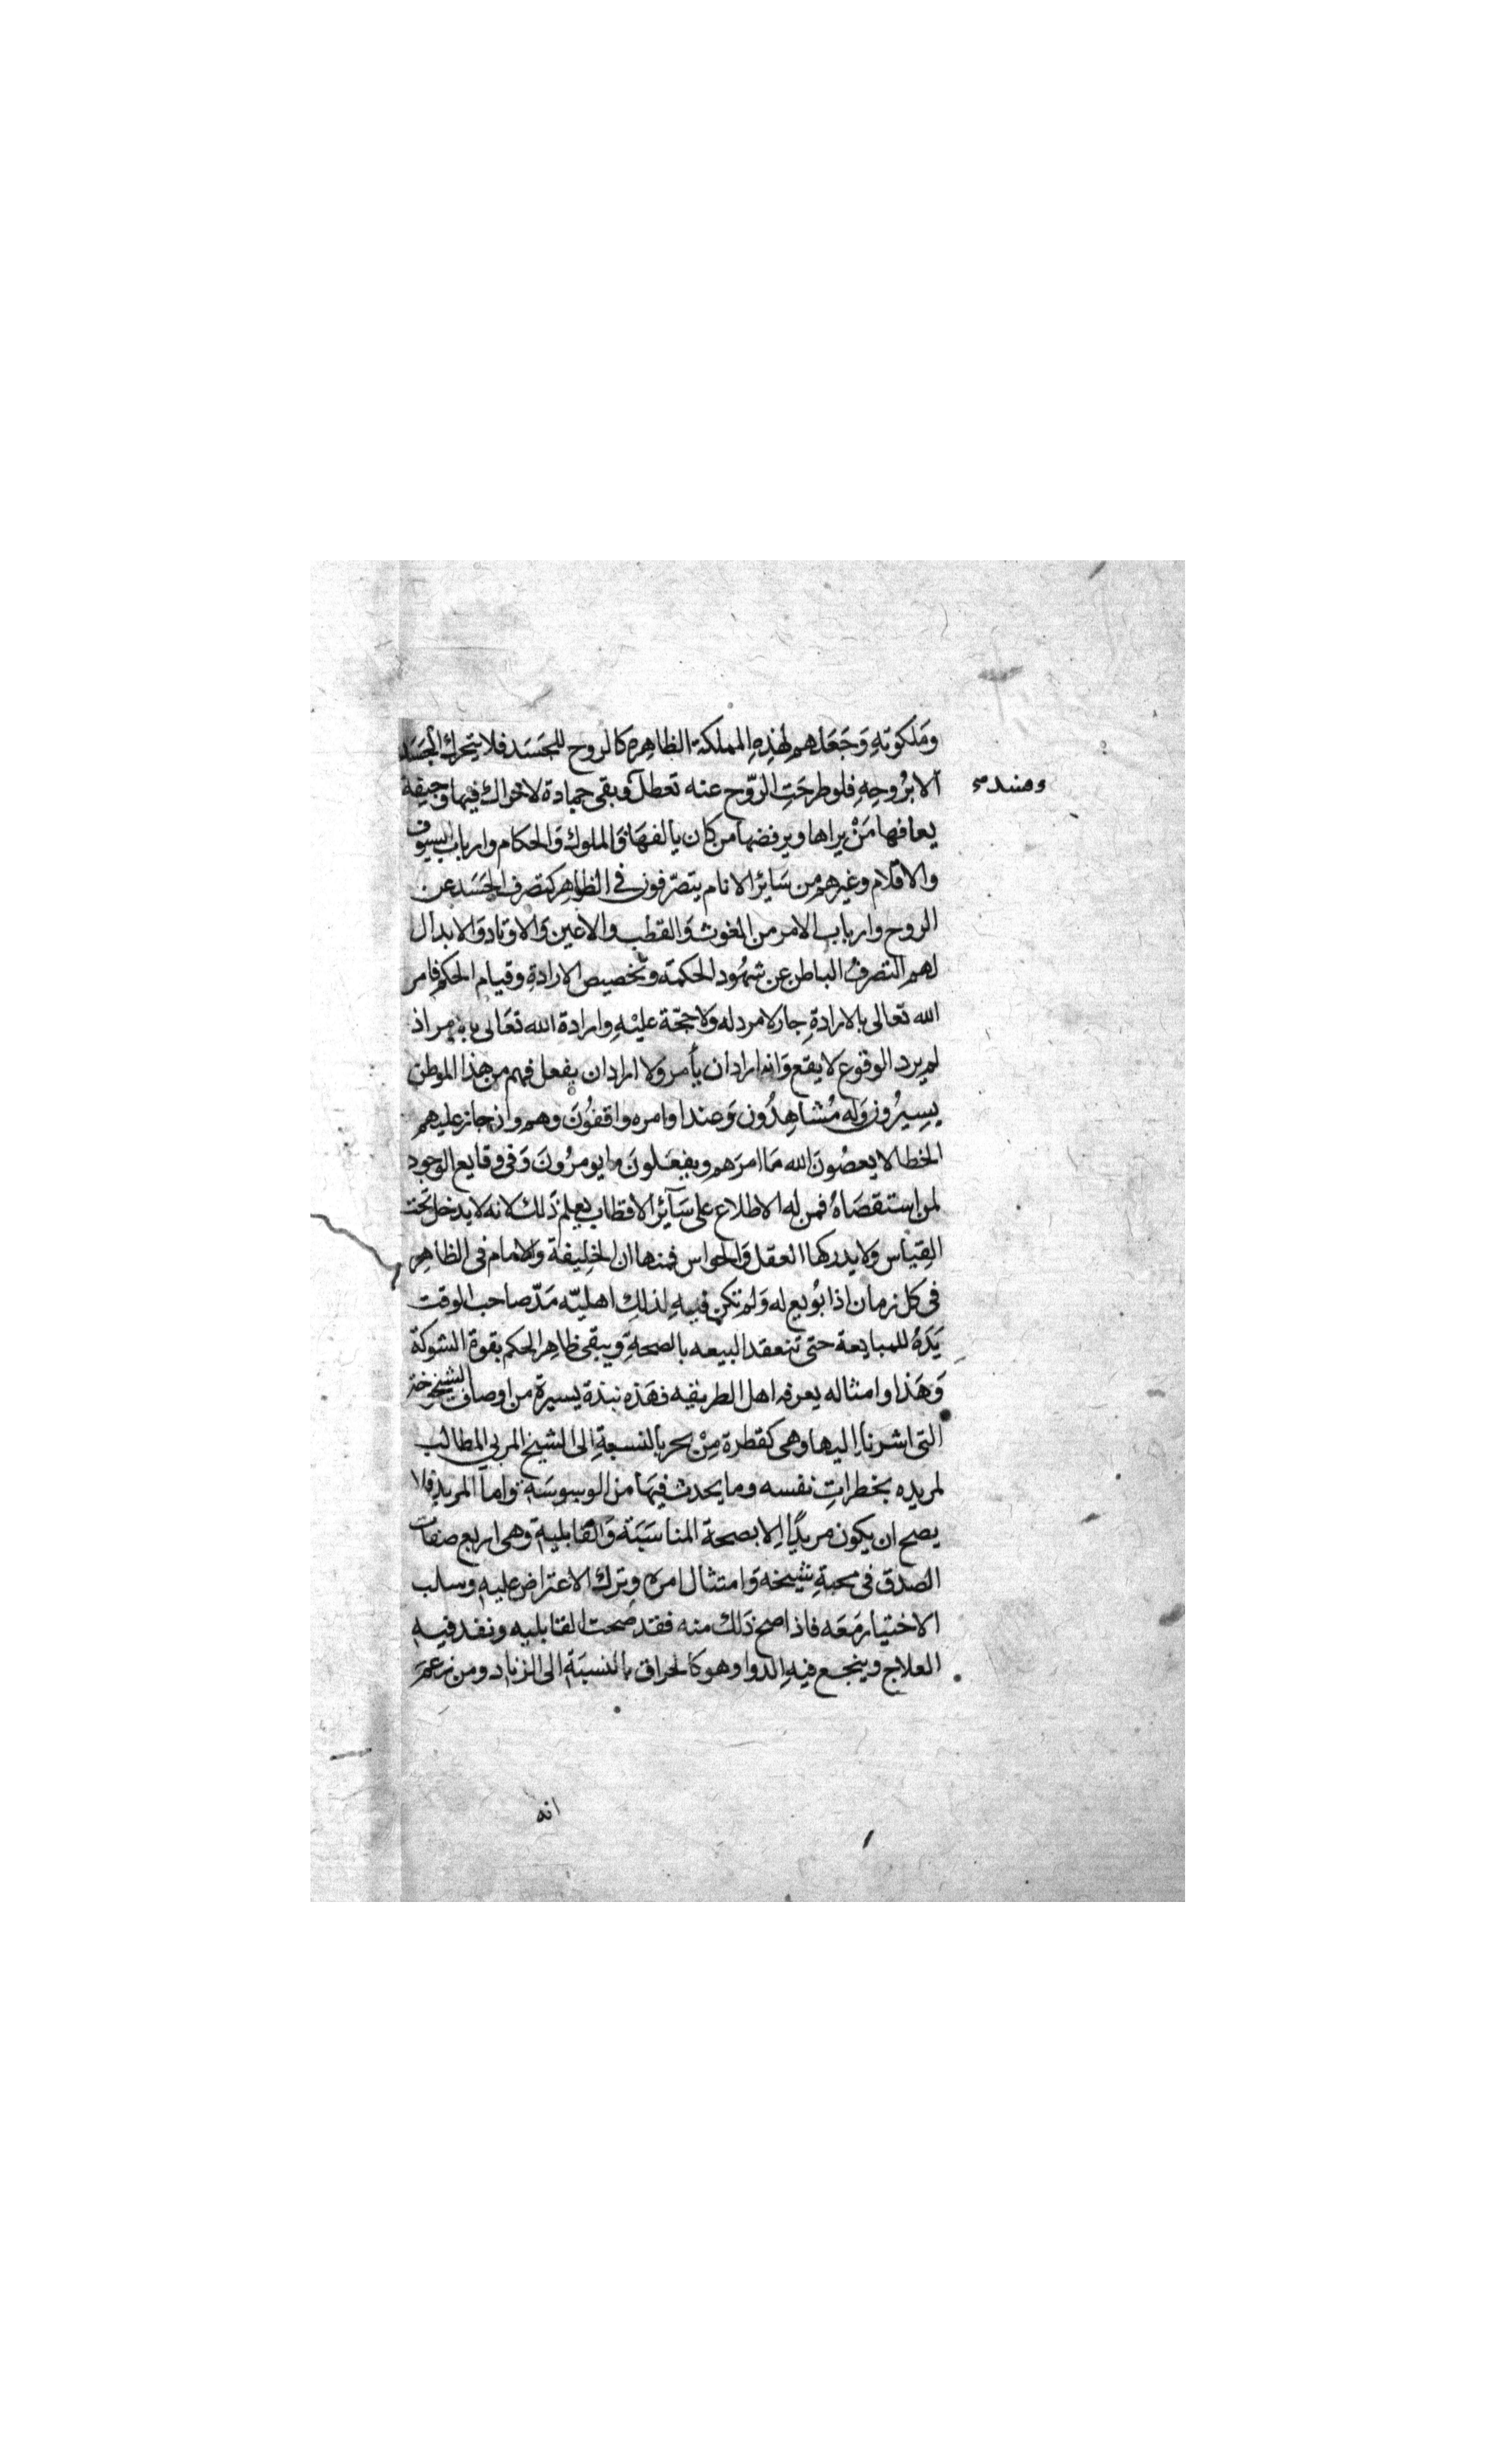 ومَلكوتهِ وَجَعَلهم لهٰذِهِ المملكة الظاهِره كالروح للجَسَد فلا يتحرك الجَسَد
الا برُوحِهِ فلو طرحَتِ الرّوح عنه تعطل وبقى جمادة لاحراك فيها وجيفة
يعافها مَنْ يراها ويرفضها من كان يالفهَا فَالملوك وَالحكام وارباب السيوف
والاقلام وغيرهم من سَائر الانام يتصرّفون في الظاهِر كتصرف الجَسَد عن
الروح وارباب الامر من الغوث وَالقطب والاعين وَالاوتاد وَالابدال
لهم التصرفُ الباطن عن شهُود الحكمة وتخصيص الارادةِ وقيام الحكم فامر
الله تعالى بالارادةِ جار لا مرد له ولا حجّة عليْهِ وارادة الله تعَالى اذ
لم يرد الوقوع لا يقع وَانه اراد ان يأمر ولا اراد ان يفعل فهم من هذا الموطن
يسِيرُون وَله مُشاهِدُون وَعند اوامره واقفوُنَ وهم وان جاز عليهم
الخطا لا يعصُونَ الله مَا امرَهم ويفعَلونَ ما يومرُونَ وَفى وقايع الوجود
لمن استقصَاهُ فمن له الاطلاع على سَآئر الاقطاب يعلم ذَلك لانه لا يدخل تحت
القِيَاس ولا يدركها العقل وَالحواس فمنها ان الخِليفة والامام فى الظاهِر
فى كل زمان اذا بُويع له وَلم تكن فيهِ لذلك اهليّه مَدّ صاحب الوقت
يَدَهُ للمبايعة حتى تنعقد البيعه بالصحةِ ويبقى ظاهِر الحكم بقوة الشوكة
وَهَذا وامثاله يعرفه اهل الطريقه فهَذه نبذة يسيرة من اوصاف الشيخوخة
التى اشرنا اليها وهى كقطرة مِنْ بحر بالنسبةِ الى الشيخ المربى المطالب
لمريده بخطراتِ نفسه وما يحدث فيهَا من الوسوسَةِ وَاما المريد فلا
يصح ان يكون مريدًا اِلا بصحة المناسَبَة وَالقابليةِ وهى اربع صفات
الصدق فى محبةِ شيخه وَامتثال امره وترك الاعتراض عليهِ وسلب
الاختيار مَعَه فاذا صح ذَلك منه فقد صَحت القابليه ونفد فيهِ
العلاج وينجع فيهِ الدوا وهو كالحراق بالنسبَةِ الى الزناد ومن زعمَ
انه